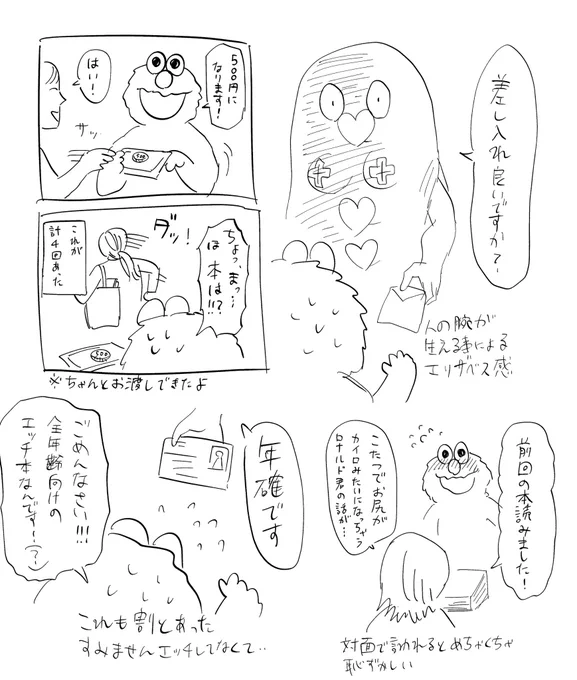 差し入れ良いですか?
人の腕が
生える事による
エリザベス感
500円に
なります!
はい!
サッ
500
ちょっ、まっ…
ほ本は!!?
ダッ!
これが
計4回あった
500
※ちゃんとお渡しできたよ
前回の本読みました!
こたつでお尻が
カイロみたいになっちゃう
ロナルド君の話が…
対面で言われるとめちゃくちゃ
恥ずかしい
年確です
ごめんなさい!!!
全年齢向けの
エッチ本なんです!(?)
これも割とあった
すみませんエッチしてなくて‥